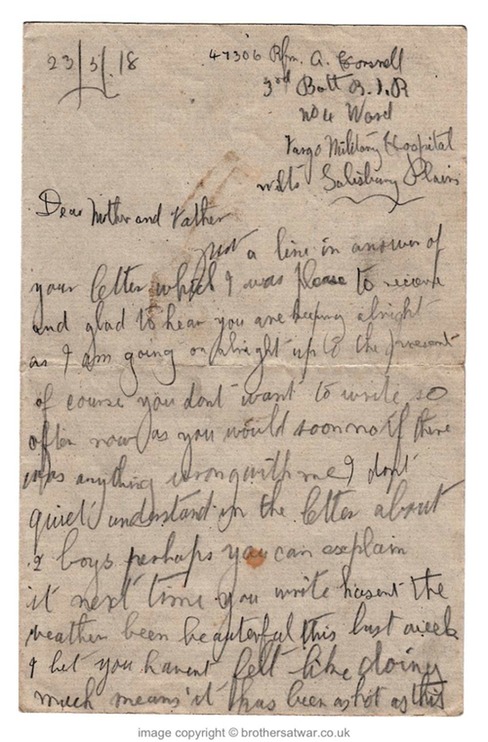 23/5/18
47306 Rfm. A.
3rd Batt R.I.R
No 4 Ward
Fargo Military Hospital
Wilts Salisbury Plain
Dear Mother and Father
Just a line in answer of
your letter which I was please to receive
and glad to hear you are keeping alright
as I am going on alright up to the present
of course you dont want to write so
often now as you would soon no if there
was anything wrong with me I dont
quiet understand in the letter about
boys perhaps you can explain
it next time you write hasent the
weather been beauterful this last week
I bet you havent felt like doing
much means it has been as hot as this
image copyright © brothersatwar.co.uk